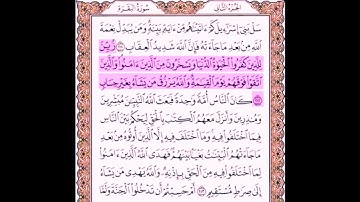 الجزء الثاني
سورة البقرة
سل بني إسرءيل كم ءاتينهم من ءاية بينة ومن يبدل نعمة
الله من بعد ما جاءته فإن الله شديد العقاب ٢١١ زين
للذين كفروا الحيوة الدنيا ويسخرون من الذين ءامنوا والذين
اتقوا فوقهم يوم القيمة والله يرزق من يشاء بغير حساب
٢١٢ كان الناس أمة وحدة فبعث الله النبين مبشرين
ومنذرين وأنزل معهم الكتب بالحق ليحكم بين الناس
فيما اختلفوا فيه وما اختلف فيه إلا الذين أوتوه من بعد
ما جاءتهم البينت بغيا بينهم فهدى الله الذين ءامنوا
لما اختلفوا فيه من الحق بإذنه والله يهدي من يشاء
إلى صرط مستقيم ٢١٣ أم حسبتم أن تدخلوا الجنة ولما